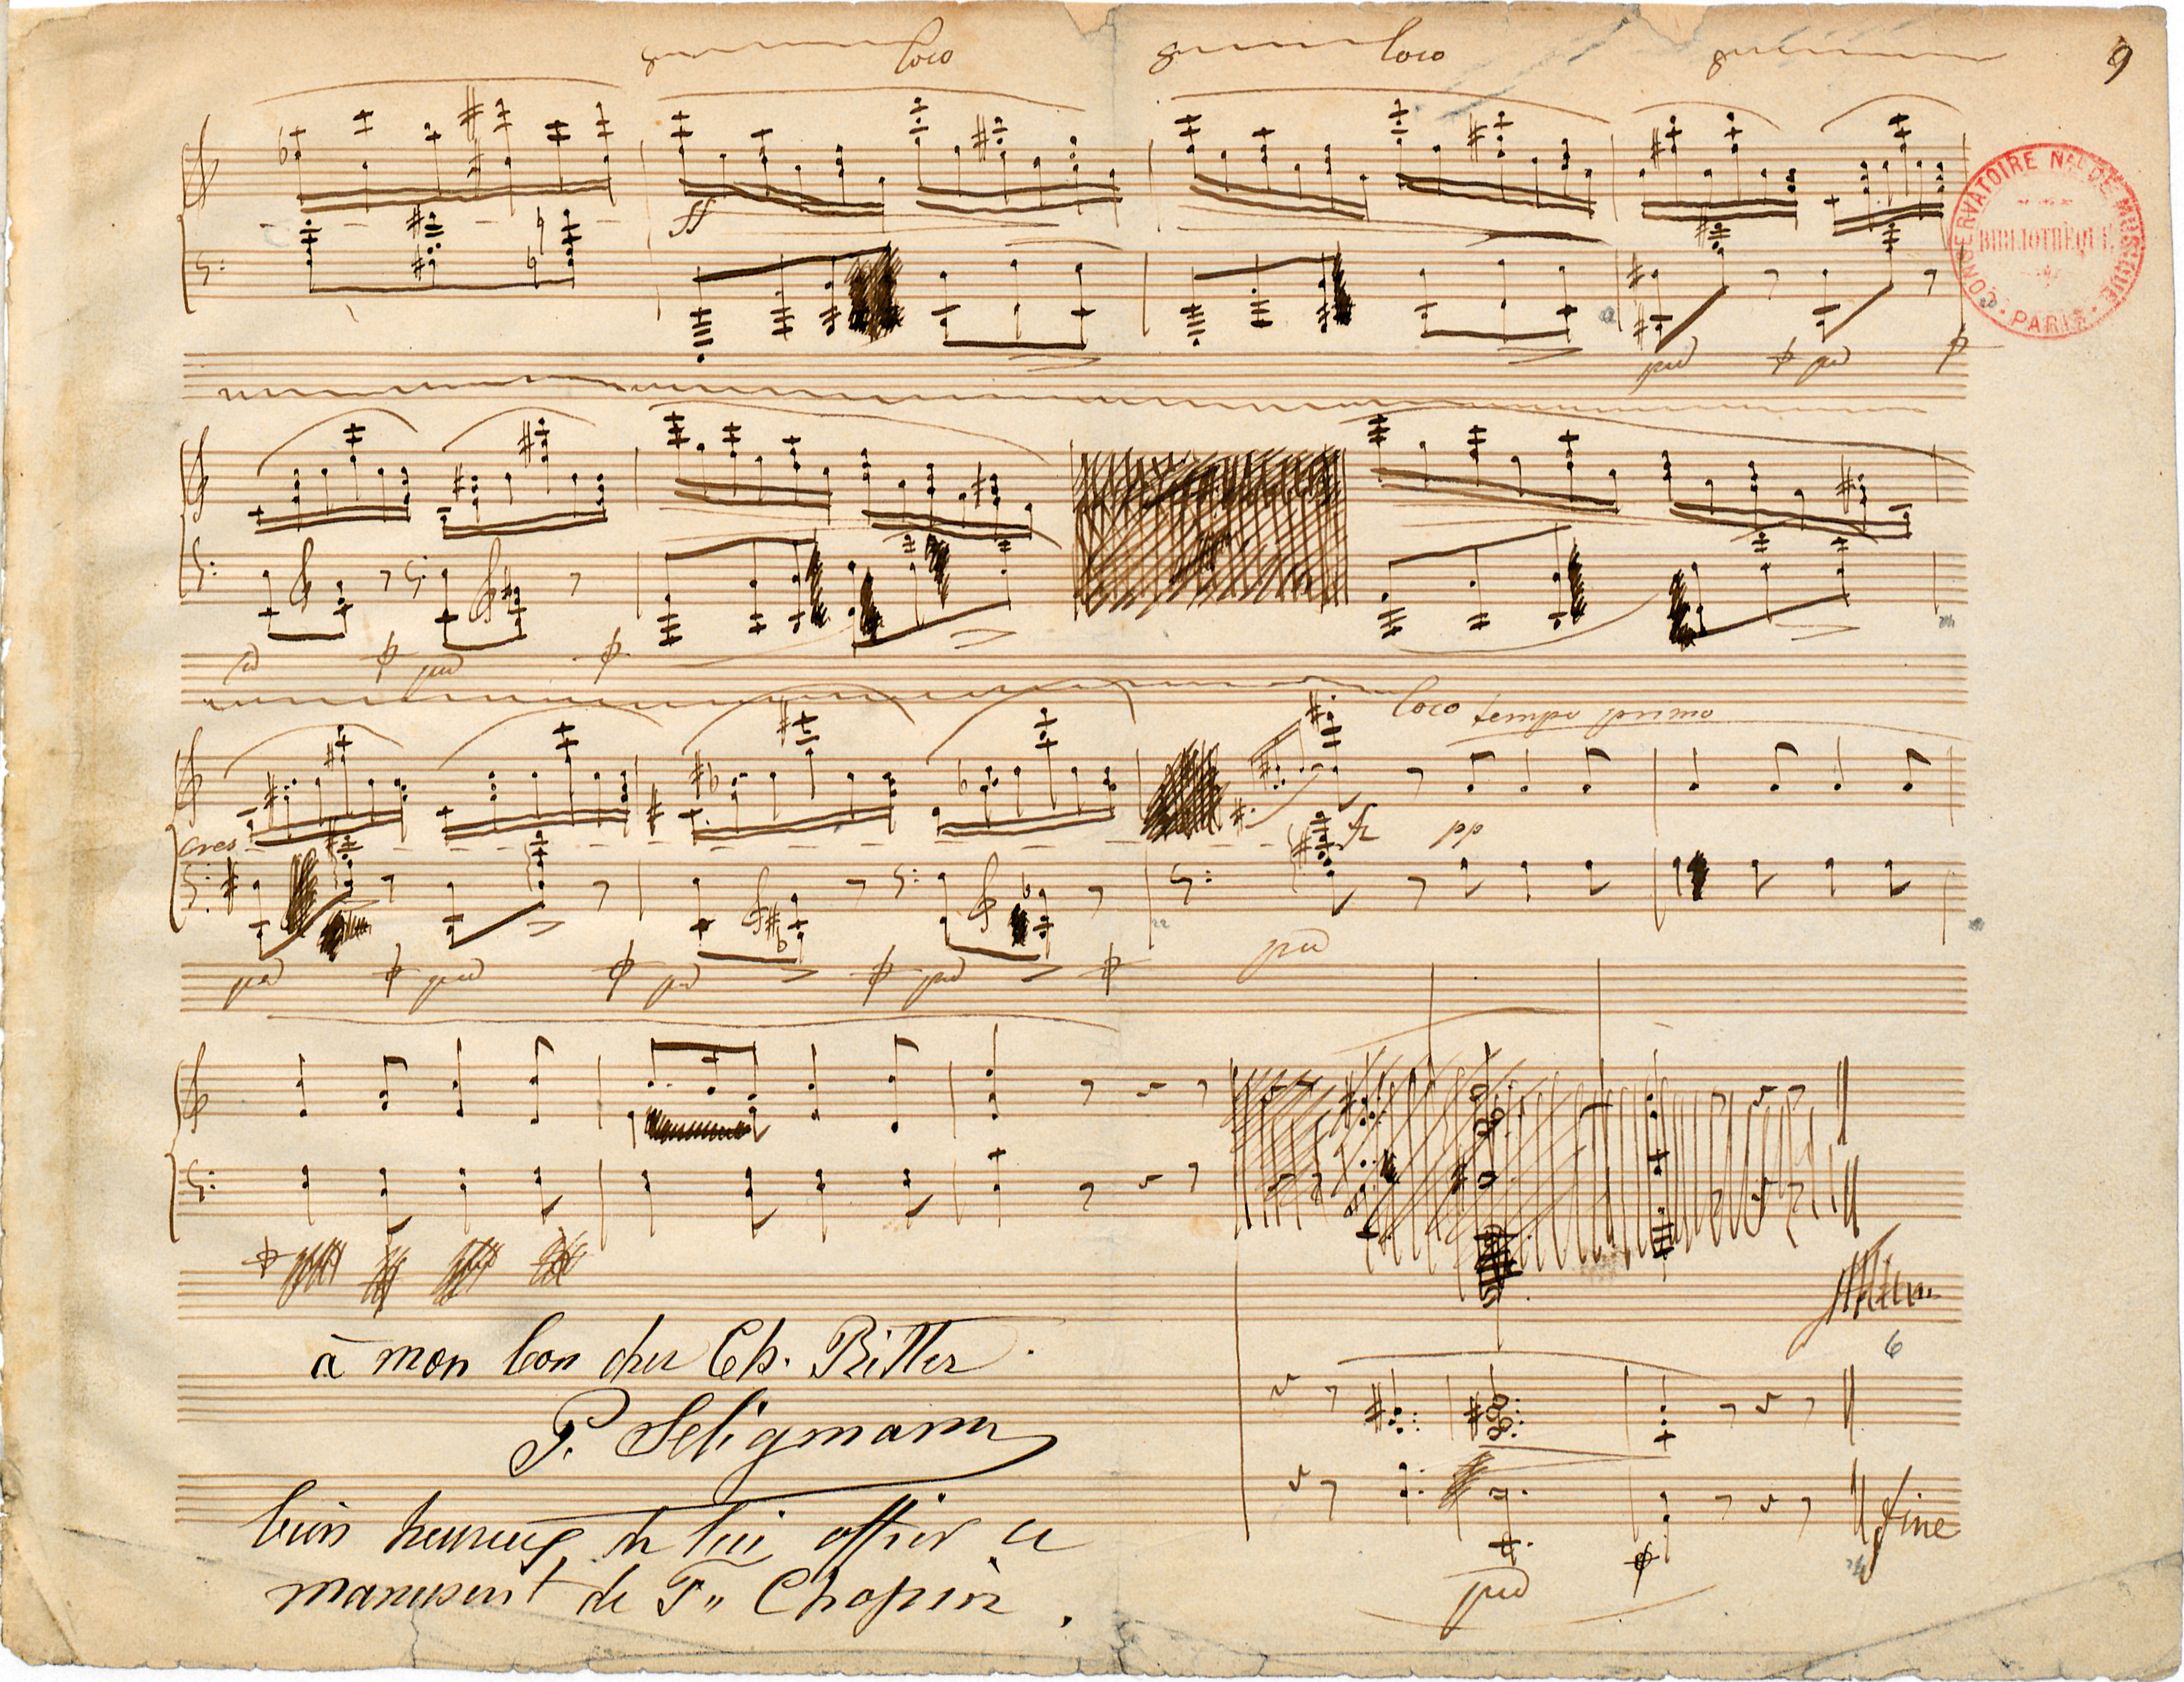 loco loco 9
CONSERVATOIRE NAL DE MUSIQUE
BIBLIOTHÈQUE
PARIS
ff
ped ped
ped
loco tempo primo
cres
fz pp
ped ped ped ped ped
6
à mon bon cher Ch. Ritter.
P. Seligmann
bien heureux de lui offrir ce
manuscrit de F" Chopin.
fine
ped